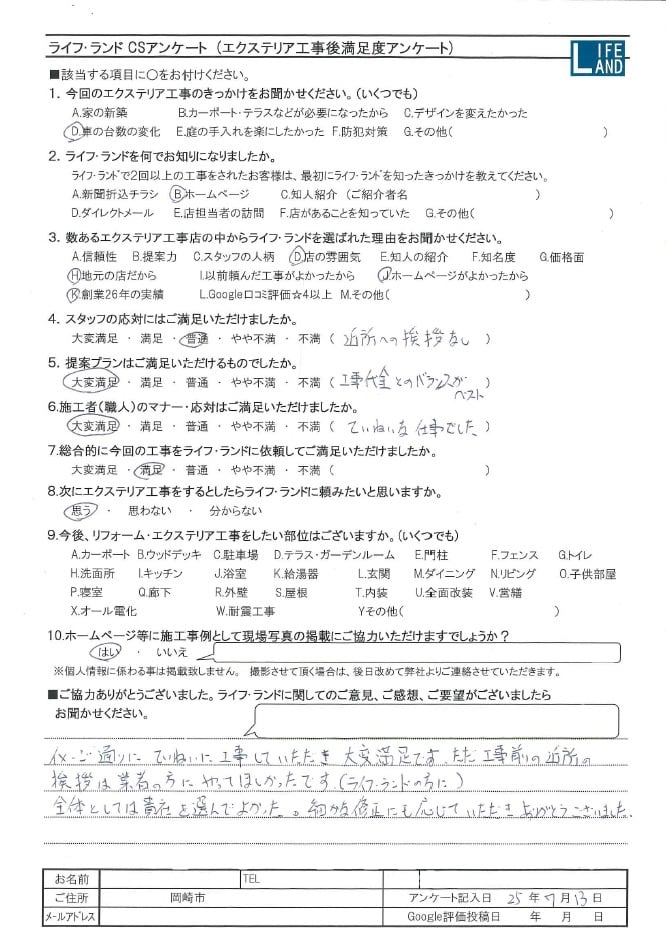 ライフ・ランド CSアンケート（エクステリア工事後満足度アンケート）
LIFE LAND
■該当する項目に○をお付けください。
1．今回のエクステリア工事のきっかけをお聞かせください。（いくつでも）
A.家の新築 B.カーポート・テラスなどが必要になったから C.デザインを変えたかった
D.車の台数の変化 E.庭の手入れを楽にしたかった F.防犯対策 G.その他( )
2．ライフ・ランドを何でお知りになりましたか。
ライフ・ランドで2回以上の工事をされたお客様は、最初にライフ・ランドを知ったきっかけを教えてください。
A.新聞折込チラシ B.ホームページ C.知人紹介 （ご紹介者名 ）
D.ダイレクトメール E.店担当者の訪問 F.店があることを知っていた G.その他( )
3．数あるエクステリア工事店の中からライフ・ランドを選ばれた理由をお聞かせください。
A.信頼性 B.提案力 C.スタッフの人柄 D.店の雰囲気 E.知人の紹介 F.知名度 G.価格面
H.地元の店だから I.以前頼んだ工事がよかったから J.ホームページがよかったから
K.創業26年の実績 L.Google口コミ評価☆4以上 M.その他( )
4．スタッフの応対にはご満足いただけましたか。
大変満足 ・ 満足 ・ 普通 ・ やや不満 ・ 不満 ( 近所への挨拶なし )
5．提案プランはご満足いただけるものでしたか。
大変満足 ・ 満足 ・ 普通 ・ やや不満 ・ 不満 ( 工事代金とのバランスが )
ベスト
6.施工者（職人）のマナー・応対はご満足いただけましたか。
大変満足 ・ 満足 ・ 普通 ・ やや不満 ・ 不満 ( ていねいな仕事でした )
7.総合的に今回の工事をライフ・ランドに依頼してご満足いただけましたか。
大変満足 ・ 満足 ・ 普通 ・ やや不満 ・ 不満 ( )
8.次にエクステリア工事をするとしたらライフ・ランドに頼みたいと思いますか。
思う ・ 思わない ・ 分からない
9.今後、リフォーム・エクステリア工事をしたい部位はございますか。（いくつでも）
A.カーポート B.ウッドデッキ C.駐車場 D.テラス・ガーデンルーム E.門柱 F.フェンス G.トイレ
H.洗面所 I.キッチン J.浴室 K.給湯器 L.玄関 M.ダイニング N.リビング O.子供部屋
P.寝室 Q.廊下 R.外壁 S.屋根 T.内装 U.全面改装 V.営繕
X.オール電化 W.耐震工事 Yその他( )
10.ホームページ等に施工事例として現場写真の掲載にご協力いただけますでしょうか？
はい ・ いいえ
※個人情報に係わる事は掲載致しません。 撮影させて頂く場合は、後日改めて弊社よりご連絡させていただきます。
■ご協力ありがとうございました。ライフ・ランドに関してのご意見、ご感想、ご要望がございましたら
お聞かせください。
イメージ通りにていねいに工事していただき大変満足です。ただ工事前の近所の
挨拶は業者の方にやってほしかったです（ライフ・ランドの方に）
全体としては貴社を選んでよかった。細かな修正にも応じていただきありがとうございました。
お名前 TEL
ご住所 岡崎市 アンケート記入日 25 年 7 月 13 日
メールアドレス Google評価投稿日 年 月 日